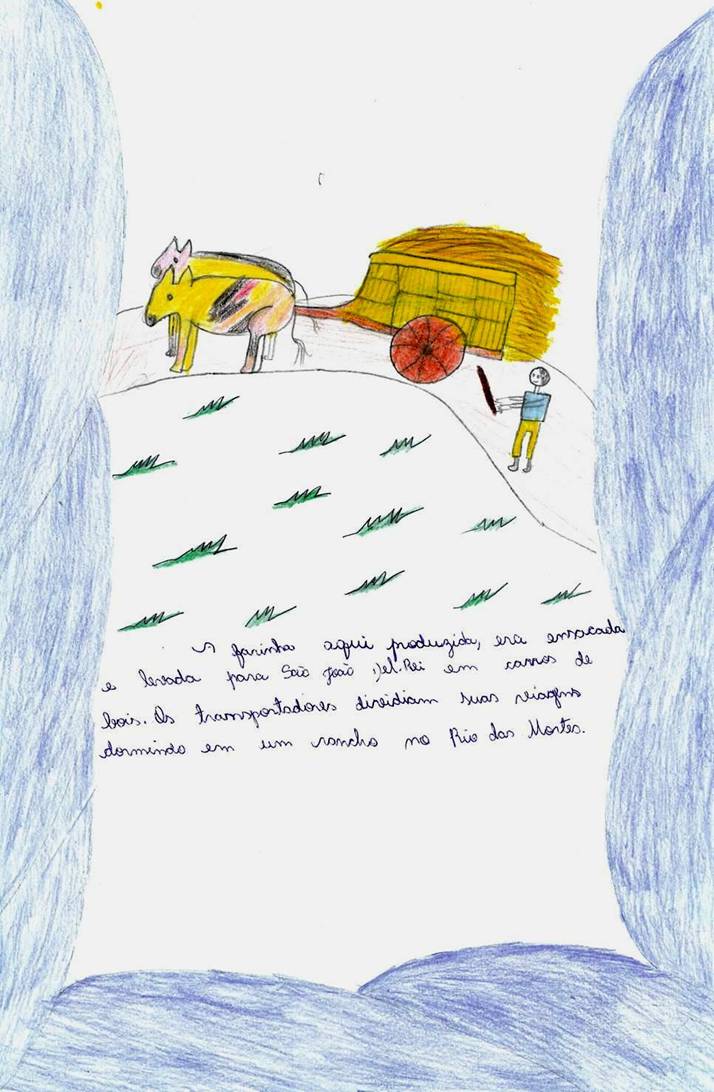 A farinha aqui produzida, era ensacada
e levada para São João Del.Rei em carros de
bois. Os transportadores dividiam suas viagens
dormindo em um rancho no Rio das Mortes.